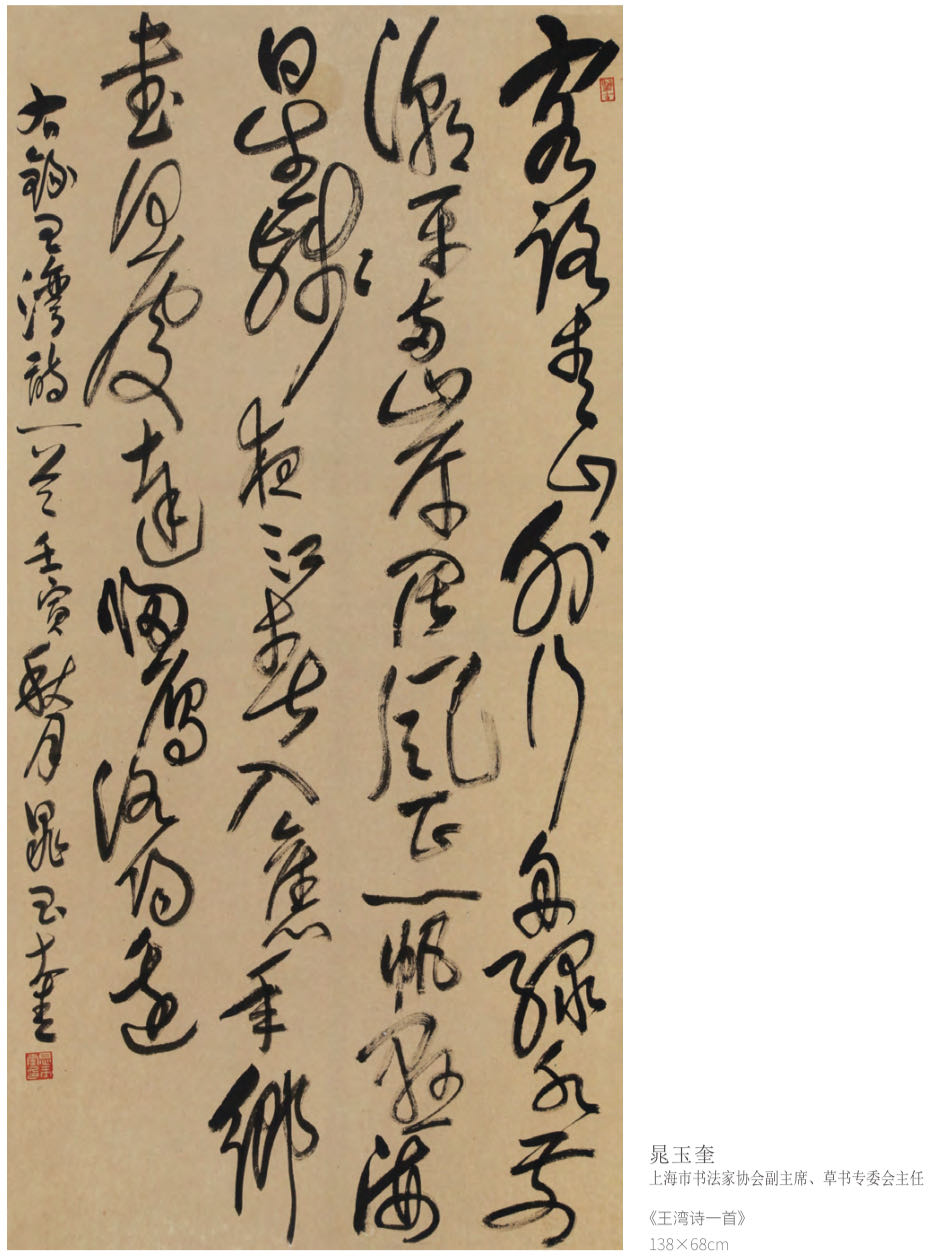 客路青山外行舟綠水前
潮平兩岸闊風正一帆懸海
日生殘夜江春入舊年鄉
書何處達歸雁洛陽邊
右錄王灣詩一首壬寅秋月晁玉奎
晁玉奎
上海市书法家协会副主席、草书专委会主任
《王湾诗一首》
138×68cm